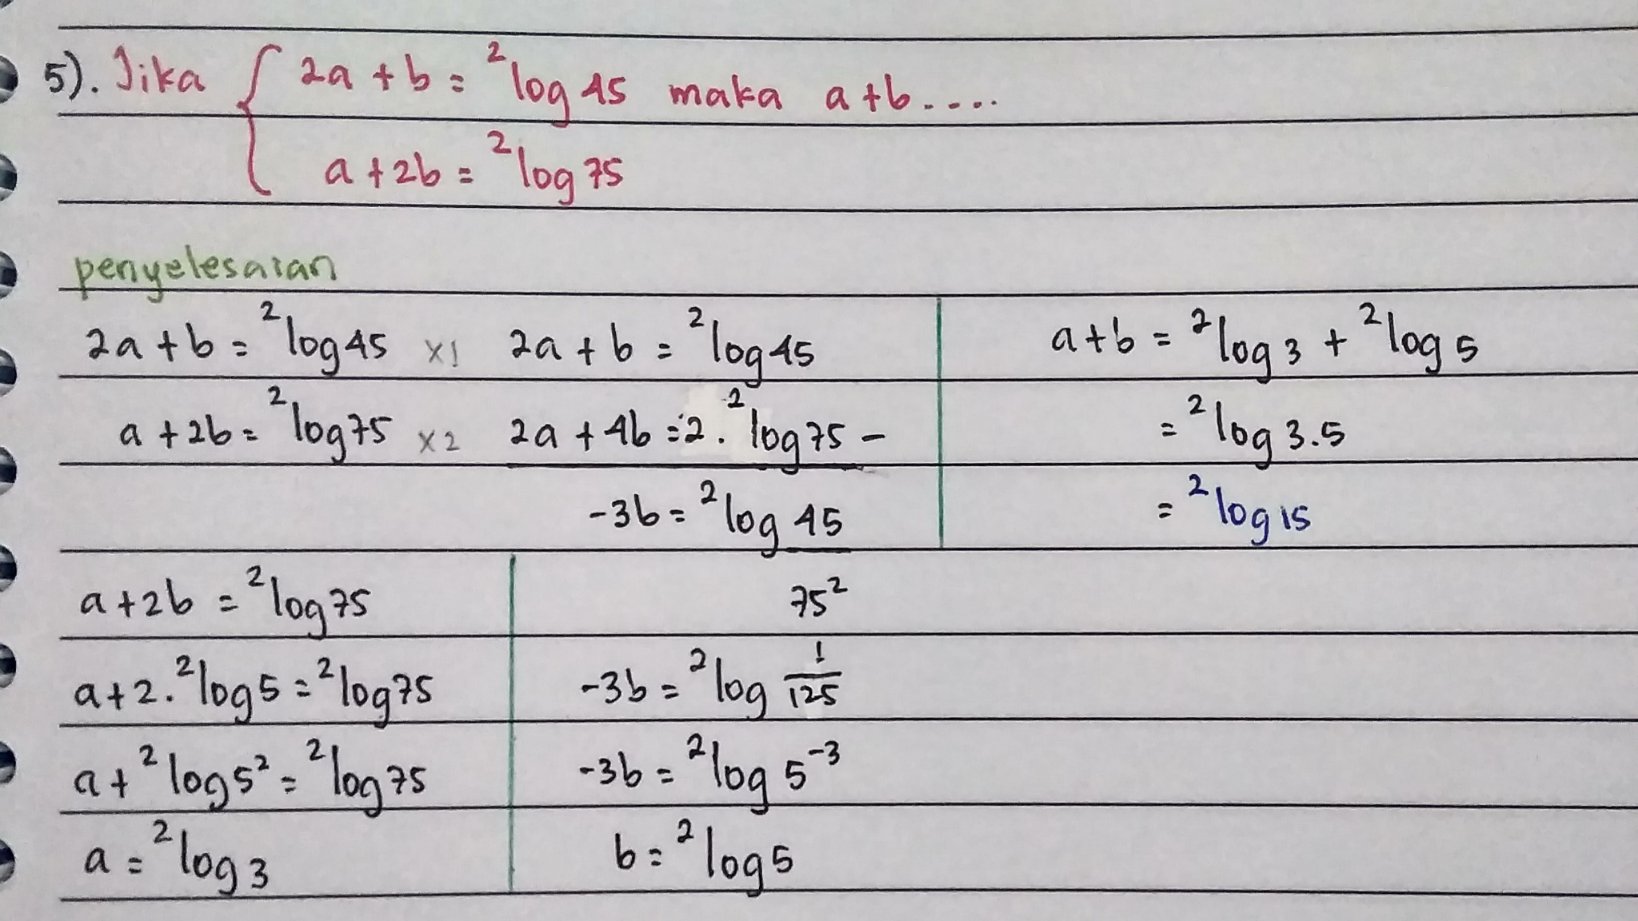 5). Jika { 2a + b = ²log 45 maka a+b....
a + 2b = ²log 75
penyelesaian
2a + b = ²log 45 x1 2a + b = ²log 45
a + 2b = ²log 75 x2 2a + 4b = 2 . ²log 75 -
-3b = ²log 45
75²
-3b = ²log 1/125
-3b = ²log 5⁻³
b = ²log 5
a + 2b = ²log 75
a + 2 . ²log 5 = ²log 75
a + ²log 5² = ²log 75
a = ²log 3
a + b = ²log 3 + ²log 5
= ²log 3.5
= ²log 15